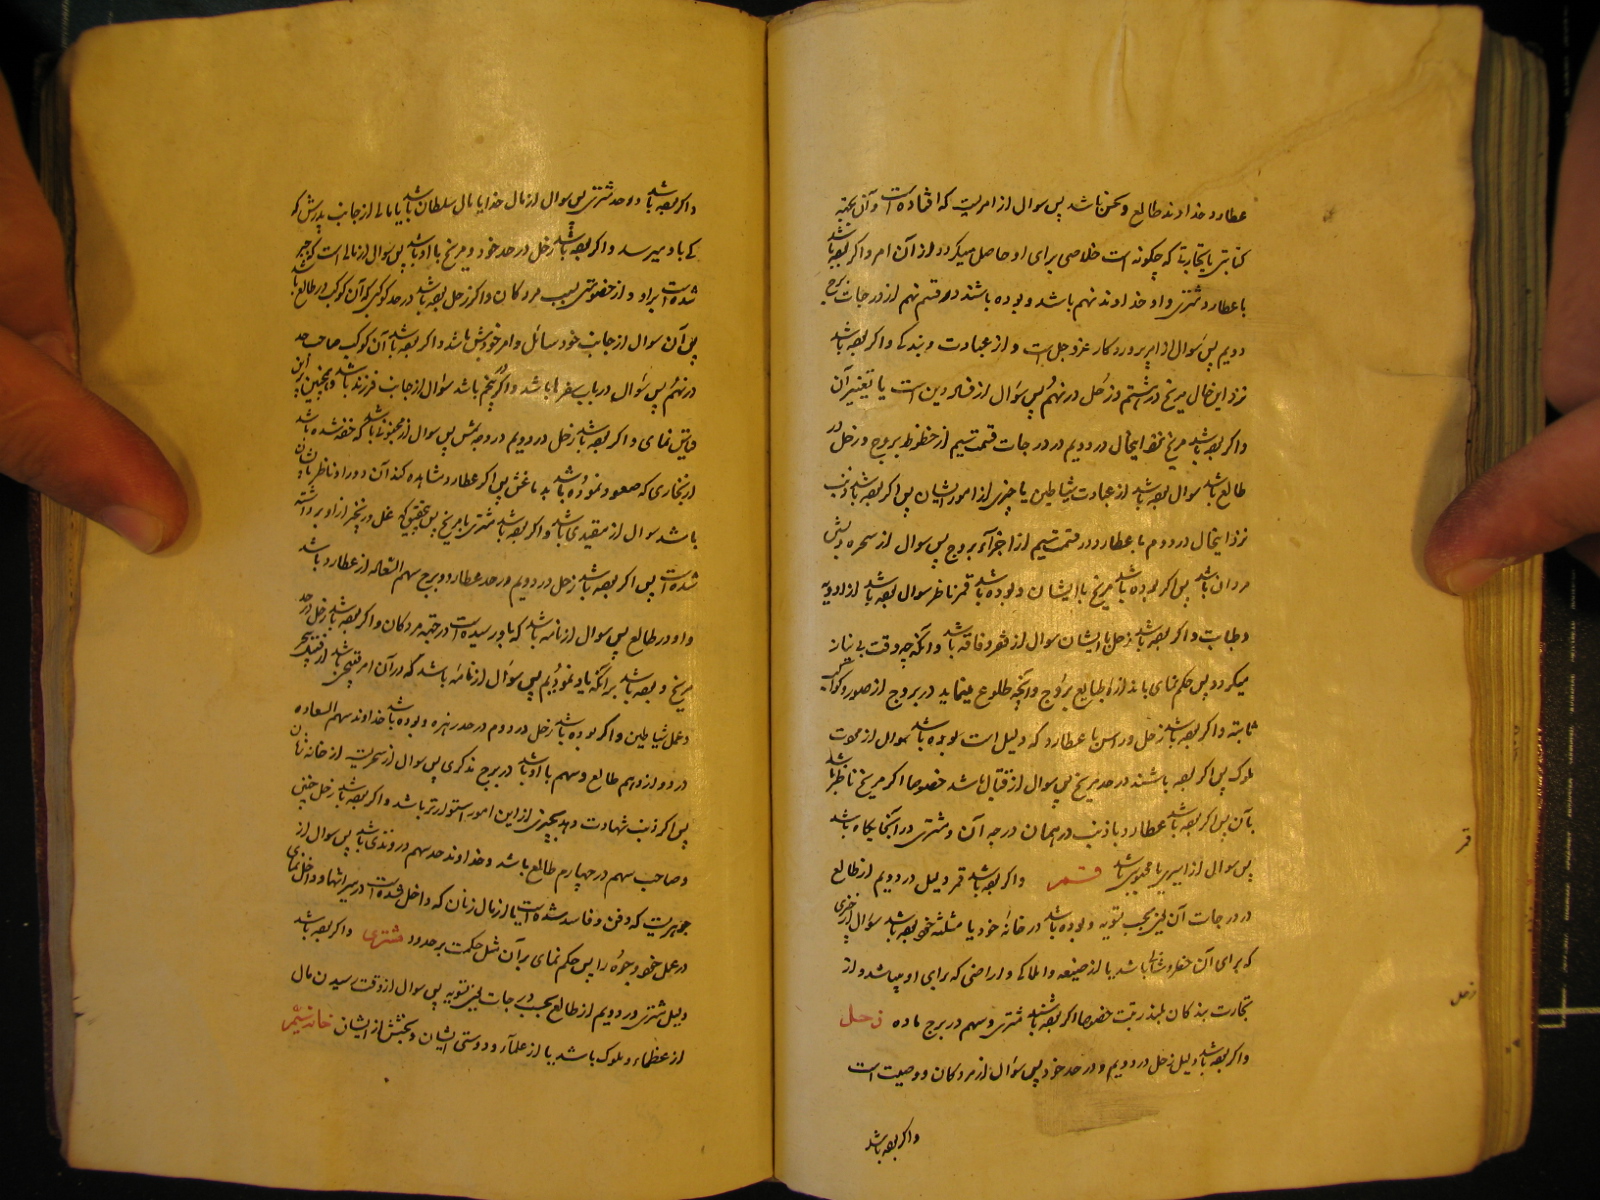 عطارد خداوند طالع و نحس باشد پس سوال از امریست که افتاده است و آن بجهة
کتابتی یا تجارتی که چگونه است خلاصی برای او حاصل میکردد از آن امر و اکر بوده باشد
با عطارد مشتری و او خداوند نهم باشد و بوده باشند در قسم نهم از درجات برج
دویم پس سوال از امر پروردکار عزوجل است و از عبادت و بندکی و اکر بوده باشد
نزد این حال مریخ در هشتم و زحل در نهم پس سوال از فساد دین است یا تغییر آن
و اکر بوده باشد مریخ نزد اینحال در دویم در درجات قسمت نهم از خطوط بروج و زحل در
طالع باشد سوال بوده باشد از عبادت شیاطین یا چیزی از امور ایشان پس اکر بوده باشد ذنب
نزد اینحال در دوم با عطارد در قسمت نهم از اجزآء بروج پس سوال از سحره و
مردان باشد پس اکر بوده باشد مریخ با ایشان و بوده باشد قمر ناظر سوال بوده باشد از ادویه
و طبابت و اکر بوده باشد زحل با ایشان سوال از فقر و فاقه باشد و آنکه چه وقت بی نیاز
میکردد پس حکم نمای باینها از طبایع بروج و آنچه طلوع مینماید در بروج از صور و کواکب
ثابته و اکر بوده باشد زحل و راس با عطارد که دلیل است بوده باشد سوال از موت
ملوک پس اکر بوده باشند در حد مریخ پس سوال از قتال باشد خصوصا اکر مریخ ناظر باشد
بآن پس اکر بوده باشد عطارد با ذنب در همان درجه آن و مشتری در آنجایکاه باشد
پس سوال از اسیری یا محبوسی باشد قمر و اکر بوده باشد قمر دلیل در دویم از طالع
در درجات آن بحسب تسویه و بوده باشد در خانهٔ خود یا مثلثه خود بوده باشد سوال از چیزی
که برای آن خطر و شان باشد یا از ضیعه و املاک و اراضی که برای او میباشد و از
تجارت بندکان بلند رتبت خصوصا اکر بوده باشند مشتری و سهم در برج ماده زحل
و اکر بوده باشد دلیل زحل در دویم و در حد خود پس سوال از مردکان و وصیت است
و اکر بوده باشد
قمر
زحل
و اکر بوده باشد در حد مشتری پس سوال از مال خدا یا مال سلطان باشد یا مالی از جانب پدرش که
کی باو میرسد و اکر بوده باشد زحل در حد خود و مریخ با او باشد پس سوال از مالی است که جبر
شده است بر او و از خصومتی بسبب مردکان و اکر زحل بوده باشد در حد کوکبی که آن کوکب در طالع باشد
پس آن سوال از جانب خود سائل و امر خودش باشد و اکر بوده باشد آن کوکب صاحب حد
در نهم پس سوال در باب سفرها باشد و اکر در پنجم باشد سوال از جانب فرزند باشد و همچنین بر این
قیاس نمای و اکر بوده باشد زحل در دویم در وجه شمس پس سوال از محبوبی باشد که خفه شده باشد
از بخاری که صعود نموده باشد بدماغش پس اکر عطارد مشاهده کند آن دو را و ناظر بایشان
باشد سوال از مقیدی باشد و اکر بوده باشد مشتری با مریخ پس بتحقیق که غل و زنجیر از او برداشته
شده است پس اکر بوده باشد زحل در دویم در حد عطارد و برج سهم السعاده از عطارد باشد
و او در طالع پس سوال از نامه باشد که باو رسیده است در جهة مردکان و اکر بوده باشد زحل در حد
مریخ و بوده باشد بر آنکه یاد نمودیم پس سوال از نامه باشد که در آن امر قبیحی باشد از قبیل سحر
و عمل شیاطین و اکر بوده باشد زحل در دوم در حد زهره و بوده باشد خداوند سهم السعاده
در دوازدهم طالع و سهم با او باشد در برج مذکری پس سوال از سحریست از خانه زنان
پس اکر ذنب شهادت دهد بچیزی از این امور استوارتر باشد و اکر بوده باشد زحل چنین
و صاحب سهم در چهارم طالع باشد و خداوند حد سهم در وتدی باشد پس سوال از
جوهریست که دفن و فاسد شده است یا از مال زنان که داخل شده است در میراثها و داخل نمای
در عمل خود وجوه را پس حکم نمای بر آن مثل حکمت بر حدود مشتری و اکر بوده باشد
دلیل مشتری در دویم از طالع بحسب درجات تسویه پس سوال از وقت رسیدن مال
از عظماء و ملوک باشد یا از علمآء و دوستی ایشان و بخشش از ایشان